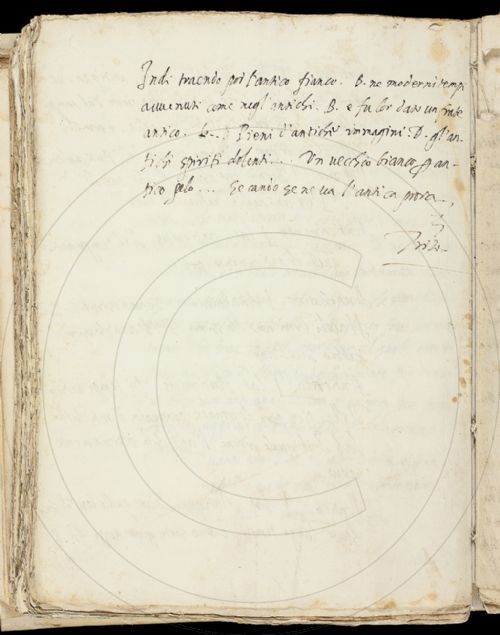 Indi traendo poi l'antico fianco. B. ne moderni tempi
avvenuti come negl'antichi. B. e fu lor dato un
antico. Pieni d'antiche immagini. D. gl'an-
tichi spiriti dolenti... Un vecchio bianco p an-
tico pelo... Secando se ne va l'antica prora.,